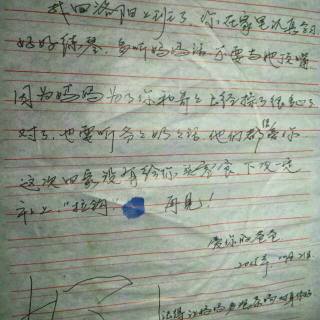 我回洛阳上班了 你在家里认真学
好好练琴,多听妈妈话不要与她顶嘴
因为妈妈为了你和哥々上学操了很多心
对了,也要听爷々奶々话,他们都很爱你
这次回家没有给你 下次一定
补上,"拉钩" 再见!
爱你的爸爸
2015年 月21日
记得让妈妈